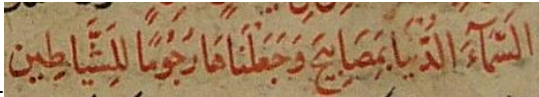 السَّمَآءَ الدُّنْيَا بِمَصَابِيحَ وَجَعَلْنَاهَا رُجُومًا لِلشَّيَاطِين